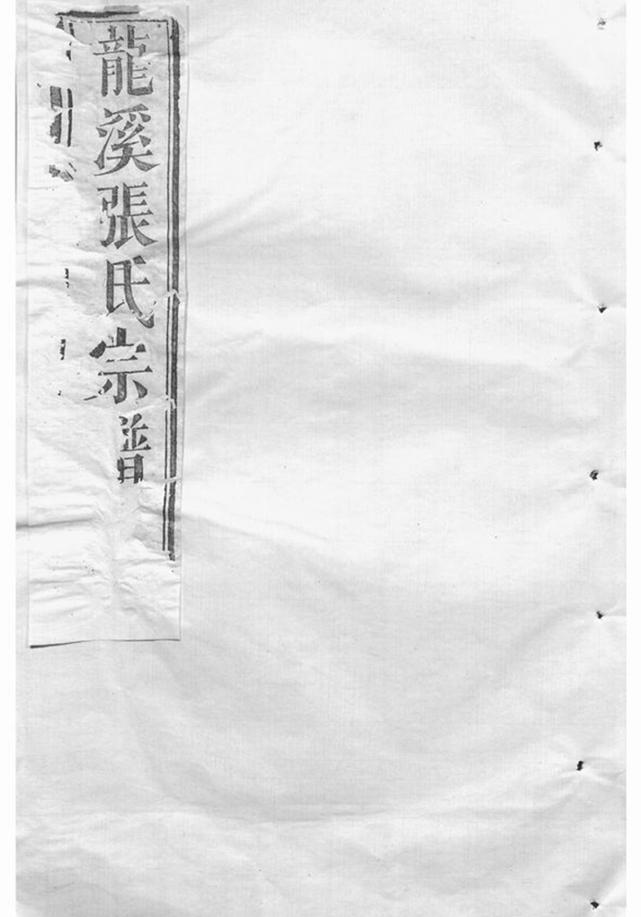 龍溪張氏宗普